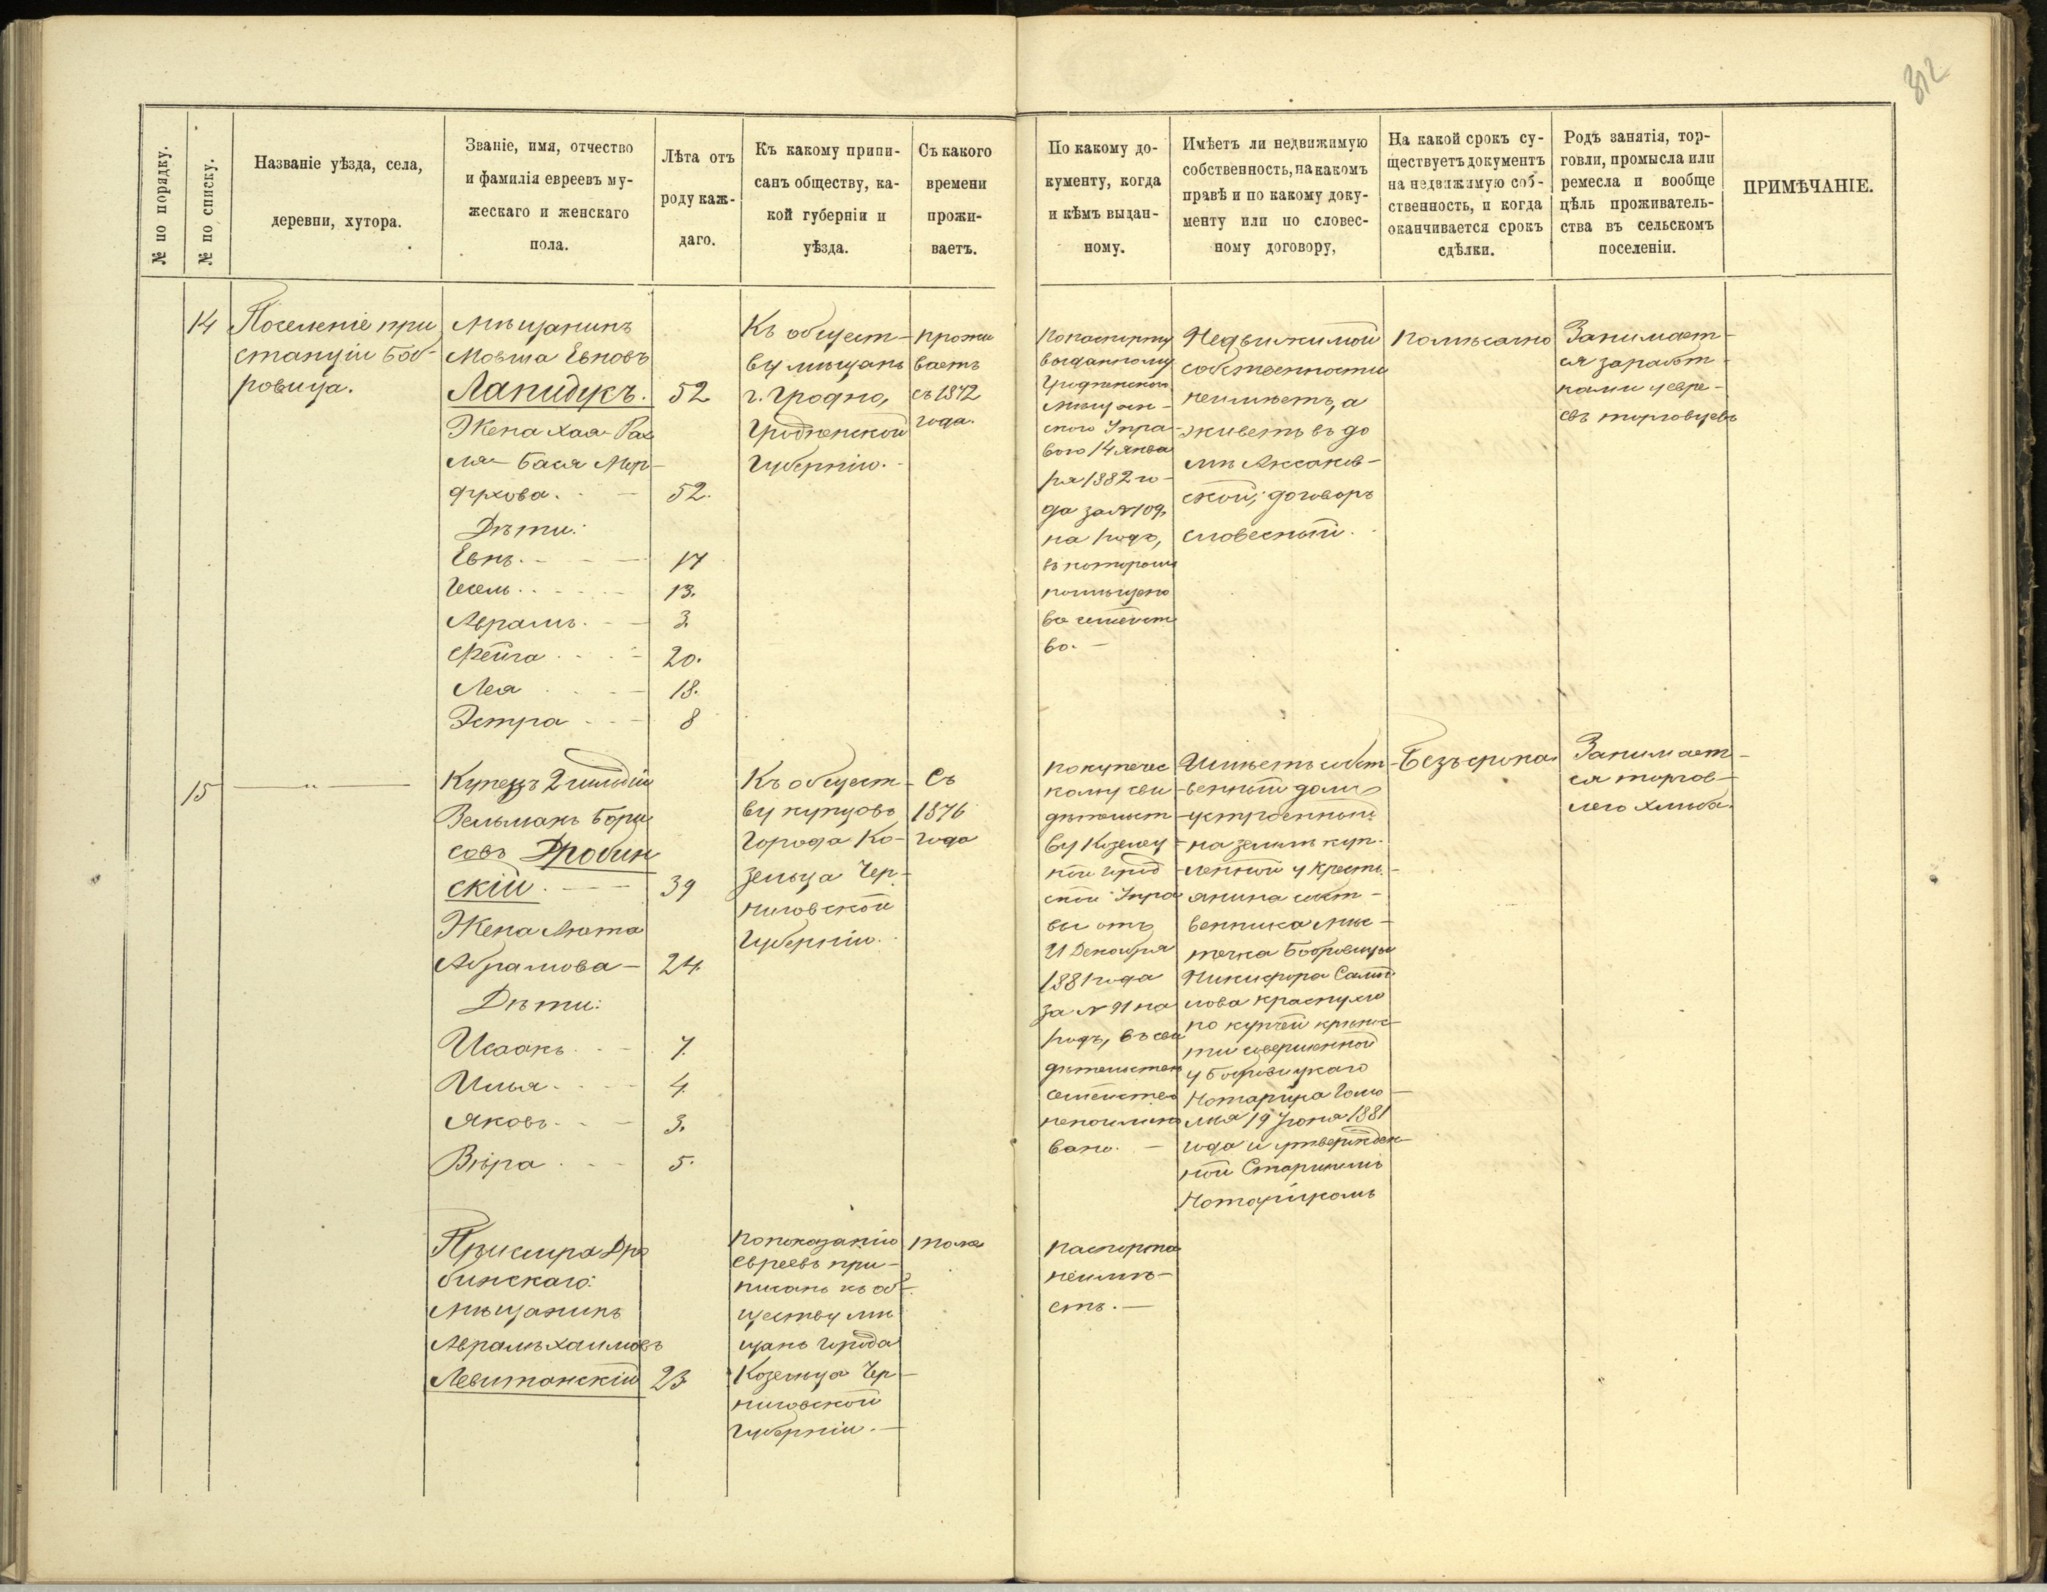 312
№ по порядку.
№ по списку.
Названіе уѣзда, села,
деревни, хутора.
Званіе, имя, отчество
и фамилія евреевъ му-
жескаго и женскаго
пола.
Лѣта отъ
роду каж-
даго.
Къ какому припи-
санъ обществу, ка-
кой губерніи и
уѣзда.
Съ какого
времени
прожи-
ваетъ.
По какому до-
кументу, когда
и кѣмъ выдан-
ному.
Имѣетъ ли недвижимую
собственность, на какомъ
правѣ и по какому доку-
менту или по словес-
ному договору,
На какой срокъ су-
ществуетъ документъ
на недвижимую соб-
ственность, и когда
оканчивается срокъ
сдѣлки.
Родъ занятія, тор-
говли, промысла или
ремесла и вообще
цѣль проживатель-
ства въ сельскомъ
поселеніи.
ПРИМѢЧАНІЕ.
14
Поселеніе при
станціи Боб-
ровица.
Мѣщанинъ
Мовша Евновъ
Лапидукъ. 52
Жена Хая-Рах
ля-Бася Мор-
духова. 52.
Дѣти:
Евнъ. 17
Гесель. 13.
Абрамъ. 3.
Фейга 20.
Лея 18.
Эстра 8
Къ общест-
ву мѣщанъ
г. Гродно,
Гродненской
Губерніи.
прожи
ваетъ
съ 1872
года.
По паспорту
выданному
Гродненской
мѣщан-
ской Упра-
вою 14 янва
ря 1882 го-
да за № 109,
на годъ,
въ которомъ
помѣщено
все семейст
во.
Недвижимой
собственности
неимѣетъ, а
живетъ въ до
мѣ Аксаков-
ской; договоръ
словесный.
Помѣсячно
Занимает-
ся заработ-
ками у евре-
евъ торговцевъ
15
— „ —
Купецъ 2 гильдіи
Зельманъ Бори
совъ Дробин
скій. 39
Жена Люта
Абрамова 24.
Дѣти:
Исаакъ 7.
Илья 4.
Яковъ. 3.
Вѣра 5.
Къ общест-
ву купцовъ
города Ко-
зельца Чер-
ниговской
Губерніи.
Съ
1876
года
По купечес
кому сви
дѣтельст
ву Козелец
кой Город
ской Упра
вы отъ
21 Декабря
1881 года
за № 91 на
годъ, въ сви
дѣтельствѣ
семейство
непоимено
вано.
Имѣетъ собст
венный домъ
устроенный
на землѣ куп-
ленной у крестья-
янина собст-
венника мѣс-
течка Бобровицы
Никифора Самой
лова Краснухо
по купчей крѣпос-
ти совершенной
у Бобровицкаго
Нотаріуса Голо-
мля 19 Іюня 1881
года и утвержден-
ной Старшимъ
Нотаріусомъ
Безъ срока
Занимает-
ся торгов-
лею хлѣба.
Дро
бинскаго:
Мѣщанинъ
Абрамъ Хаимовъ
Левитанскій 23
По показанію
евреевъ при-
писанъ къ об-
ществу мѣ
щанъ города
Козельца Чер-
ниговской
Губерніи.
тоже
паспорта
неимѣ-
етъ.